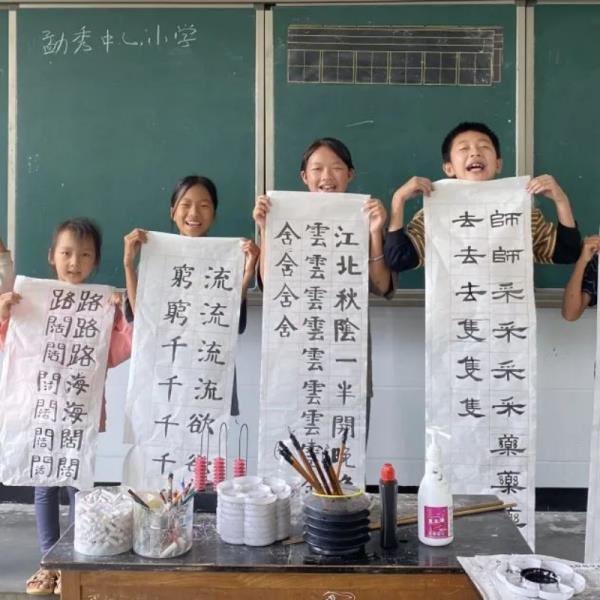 勐秀中心小学
路路路海海闊闊
路闊闊闊闊闊闊
流流流流欲
窮窮千千千千
江北秋陰一半開晚
雲雲雲雲雲雲雲
舍舍舍舍
師師采采采采藥藥藥
去去去隻隻隻